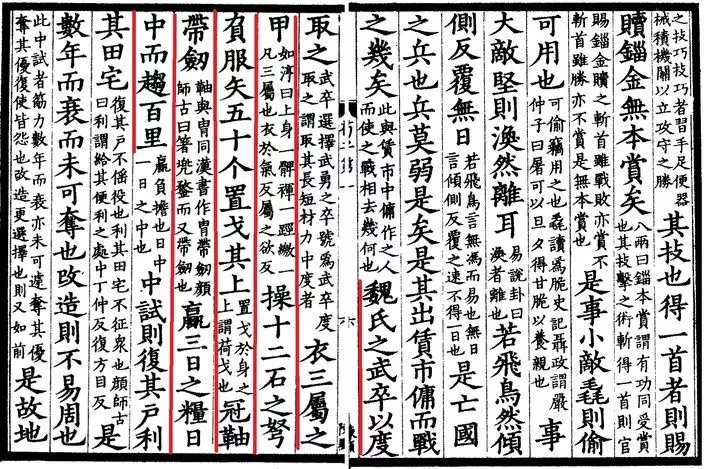 之技巧技巧者習手足便器
械積機關以立攻守之勝
其技也得一首者則賜
贖錙金無本賞矣
八兩曰錙本賞謂有功同受賞
也其技擊之術斬得一首則官
賜錙金贖之斬首雖戰敗亦賞不
斬首雖勝亦不賞是無本賞也
是事小敵毳則偷
可用也
可偷竊用之也毳讀為脆史記聶政謂嚴
仲子曰屠可以旦夕得甘脆以養親也
事
大敵堅則渙然離耳
易說卦曰
渙者離也
若飛鳥然傾
側反覆無日
若飛鳥言無馮而易也無日
言傾側反覆之速不得一日也
是亡國
之兵也兵莫弱是矣是其出賃市傭而戰
之幾矣
此與賃市中傭作之人
而使之戰相去幾何也
魏氏之武卒以度
六
取之
武卒選擇武勇之卒號為武卒度
取之謂取其長短材力中度者
衣三屬之
甲
如淳曰上身一髀褌一踁繳一
凡三屬也衣於氣反屬之欲反
操十二石之弩
負服矢五十个置戈其上
置戈於身之
上謂荷戈也
冠䩜
帶劒
䩜與冑同漢書作冑帶劒顏
師古曰著兜鍪而又帶劒也
贏三日之糧日
中而趨百里
贏負擔也日中
一日之中也
中試則復其戶利
其田宅
復其戶不徭役也利其田宅不征衆也顏師古
曰利謂給其便利之處中丁仲反復方目反
是
數年而衰而未可奪也改造則不易周也
此中試者筋力數年而衰亦未可遽奪其優
奪其優復使皆怨也改造更選擇也則又如前
是故地